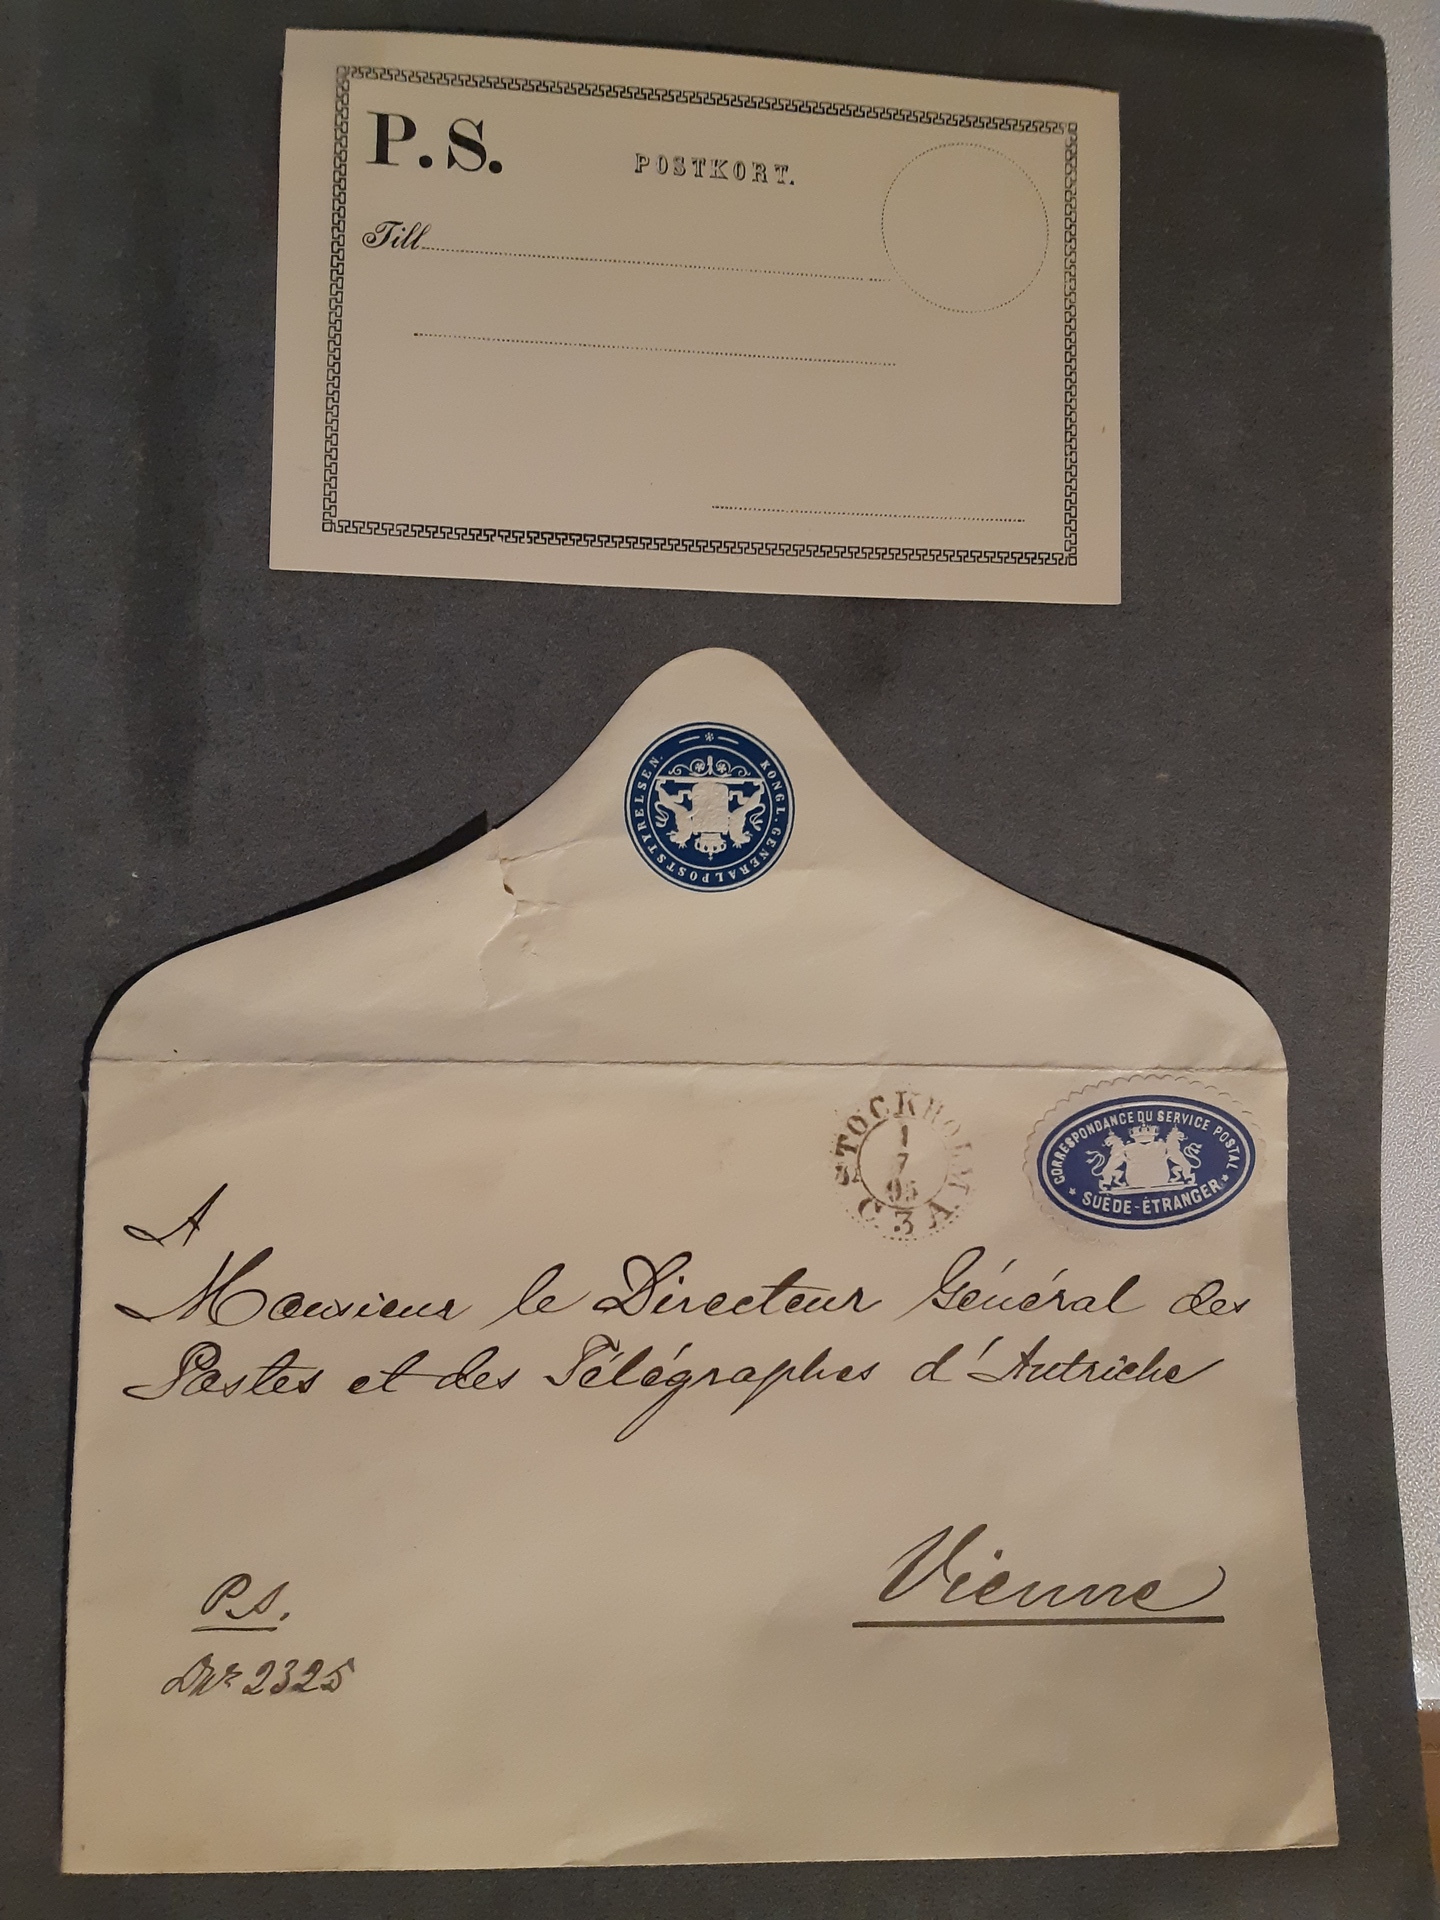 P.S.
POSTKORT.
Till
KONGL. GENERALPOSTSTYRELSEN.
STOCKHOLM
1
7
95
C. 3 A
CORRESPONDANCE DU SERVICE POSTAL
SUÈDE-ÉTRANGER
A
Monsieur le Directeur Général des
Postes et des Télégraphes d'Autriche
Vienne
P.S.
DNr 2325